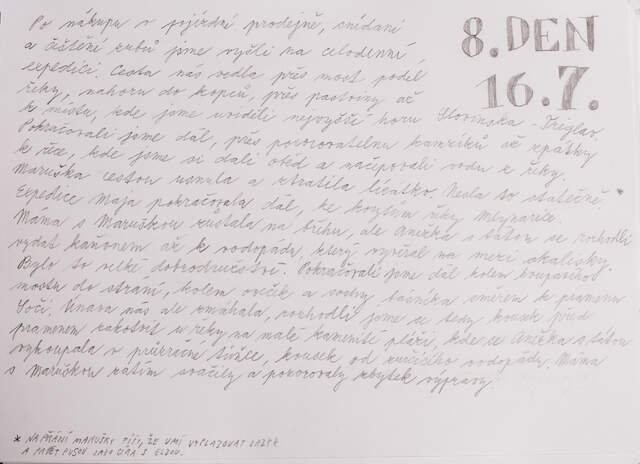 8. DEN
16.7.
Po nákupu v pojízdné prodejně, snídani
a čištění zubů jsme vyšli na celodenní
expedici. Cesta nás vedla přes most podél
řeky, nahoru do kopců, přes pastviny až
k místu, kde jsme uviděli nejvyšší horu Slovinska - Triglav.
Pokračovali jsme dál, přes pozorovatelnu kamzíků až zpátky
k řece, kde jsme si dali oběd a načepovali vodu z řeky.
Maruška cestou usnula a ztratila lízátko. Nesla to statečně *
Expedice Maja pokračovala dál, ke korytům řeky Mlynarice.
Máma s Maruškou zůstala na břehu, ale Anežka s tátou se rozhodli
vydat kaňonem až k vodopádu, který vyvěral na mezi skalisky.
Bylo to velké dobrodružství. Pokračovali jsme dál kolem houpacího
mostu do strání, kolem oveček a sochy básníka směrem k prameni
Soči. Únava nás ale zmáhala, rozhodli jsme se tedy kousek před
pramenem zakotvit u řeky na malé kamenité pláži, kde se Anežka s tátou
vykoupala v průzračné tůňce, kousek od hučícího vodopádu. Máma
s Maruškou zatím svačily a pozorovaly zbytek výpravy.
* NA PŘÁNÍ MARUŠKY PÍŠI, ŽE UMÍ VYPLAZOVAT JAZYK
A